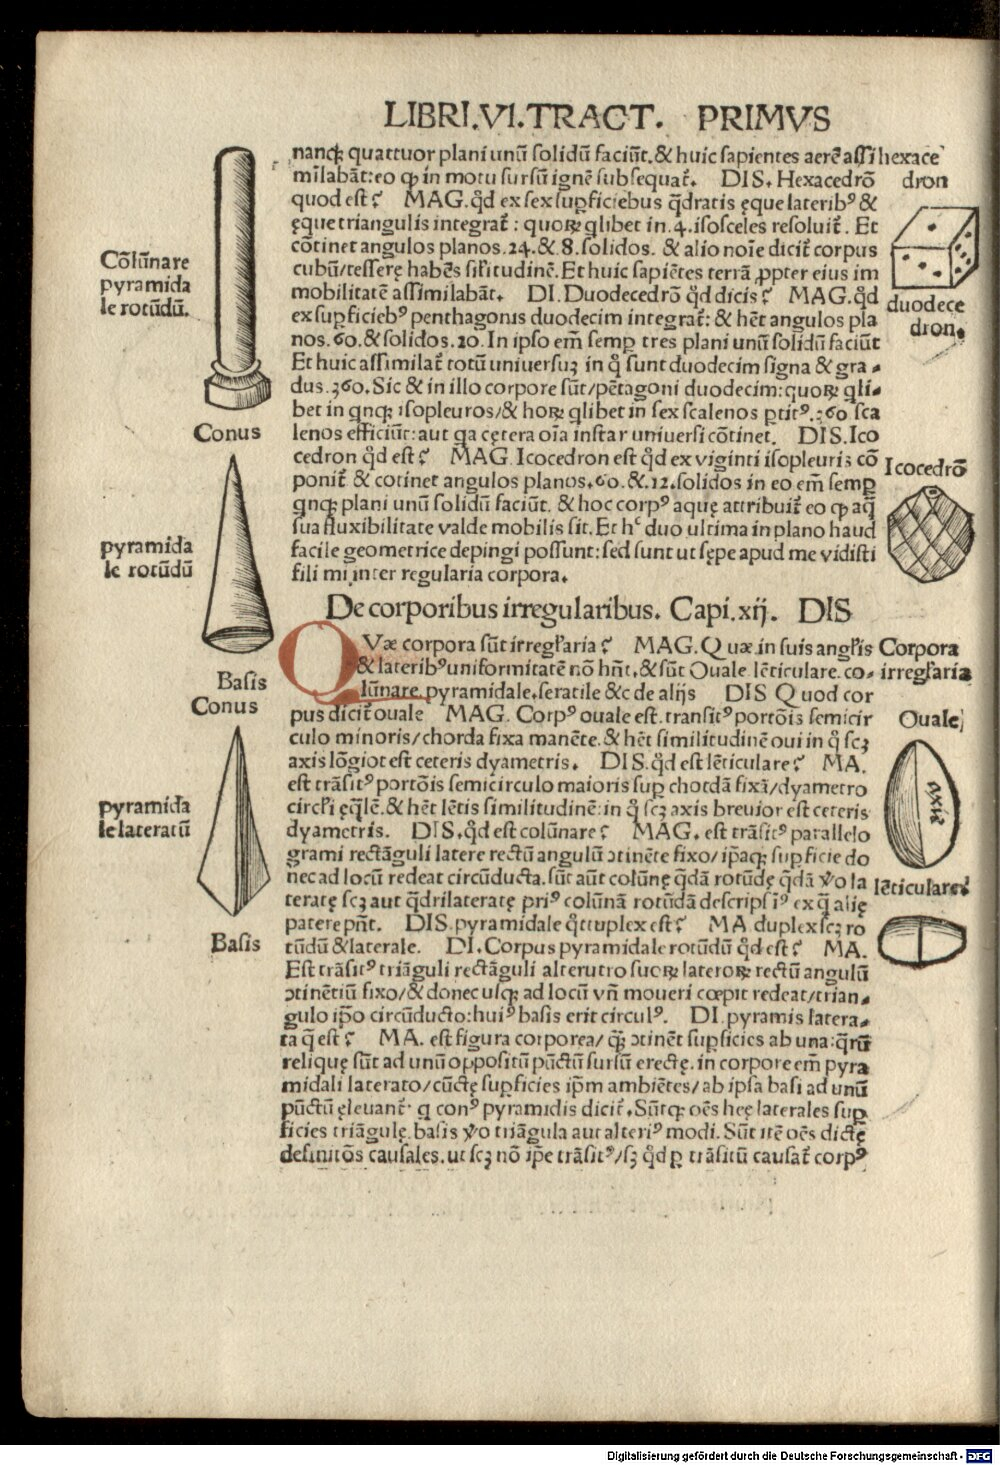 LIBRI.VI.TRACT. PRIMVS
nanqꝫ quattuor plani unū solidū faciūt.& huic sapientes aerē assi
milabāt:eo ꝙ in motu sursū ignē subsequat̄. DIS. Hexacedrō
quod est? MAG.q̄d ex sex suꝑficiebus q̄dratis ęque laterib⁹ &
ęque triangulis integrat̄ : quoꝝ q̄libet in.4.isosceles resoluit̄. Et
cōtinet angulos planos.24.& 8.solidos. & alio noīe dicit̄ corpus
cubū/tesserę habēs sil̄itudinē.Et huic sapiētes terrā ꝓpter eius im
mobilitatē assimilabāt. DI.Duodecedrō q̄d dicis? MAG.q̄d
ex suꝑficieb⁹ penthagonis duodecim integrat̄: & hēt angulos pla
nos.60.& solidos.20.In ipso em̄ semꝑ tres plani unū solidū faciūt
Et huic assimilat̄ totū universuꝫ in q̊ sunt duodecim signa & gra⸗
dus.360.Sic & in illo corpore sūt/pētagoni duodecim:quoꝝ q̄li⸗
bet in qnqꝫ isopleuros/& hoꝝ q̄libet in sex scalenos ꝑtit⁹.360 sca
lenos efficiūt:aut qa cętera oīa instar universi cōtinet. DIS.Ico
cedron q̄d est? MAG.Icocedron est q̄d ex viginti isopleuris cō
ponit̄ & cōtinet angulos planos.60.&.12.solidos in eo em̄ semꝑ
qnqꝫ plani unū solidū faciūt. & hoc corp⁹ aquę attribuit̄ eo ꝙ aq̄
sua fluxibilitate valde mobilis sit.Et hᶜ duo ultima in plano haud
facile geometrice depingi possunt:sed sunt ut sępe apud me vidisti
fili mi inter regularia corpora.
De corporibus irregularibus. Capi.xij. DIS
QVæ corpora sūt irregl̄aria? MAG.Quæ in suis angl̄is
& laterib⁹ uniformitatē nō hn̄t.& sūt Ovale.lēticulare.co⸗
lūnare.pyramidale.seratile &c de alijs DIS Quod cor
pus dicit̄ ovale MAG. Corp⁹ ovale est.transit⁹ portōis semicir
culo minoris/chorda fixa manēte.& hēt similitudinē ovi in q̊ scꝫ
axis lōgior est ceteris dyametris. DIS.q̄d est lēticulare? MA.
est trāsit⁹ portōis semicirculo maioris suꝑ chordā fixā/dyametro
circl̄i ęq̄lē.& hēt lētis similitudinē:in q̊ scꝫ axis brevior est ceteris
dyametris. DIS.q̄d est colūnare? MAG. est trāsit⁹ parallelo
grami rectāguli latere rectū angulū ↄtinēte fixo/ip̄aqꝫ suꝑficie do
nec ad locū redeat circūducta.sūt aūt colūnę q̄dā rotūdę q̄dā v̄o la
teratę scꝫ aut q̄drilateratę pri⁹ colūnā rotūdā descripsi⁹ ex q̄ alię
patere pn̄t. DIS.pyramidale q̄tuplex est? MA duplex scꝫ ro
tūdū & laterale. DI.Corpus pyramidale rotūdū q̄d est? MA.
Est trāsit⁹ triāguli rectāguli alterutro suoꝝ lateroꝝ rectū angulū
ↄtinētiū fixo/& donec usqꝫ ad locū vn̄ moveri cœpit redeat/trian⸗
gulo ip̄o circūducto:hui⁹ basis erit circul⁹. DI.pyramis latera⸗
ta q̄ est? MA. est figura corporea/ qꝫ ↄtinēt suꝑficies ab una:q̄rū
relique sūt ad unū oppositū pūctū sursū erectę.in corpore em̄ pyra
midali laterato/cūctę suꝑficies ip̄m ambiētes/ab ipsa basi ad unū
pūctū ęlevant̄ q con⁹ pyramidis dicit̄.Sūtqꝫ oēs hęę laterales suꝑ
ficies triāgulę.basis v̄o triāgula aut alteri⁹ modi.Sūt itē oēs dictę
definitōs causales.ut scꝫ nō ip̄e trāsit⁹/sꝫ q̄d ꝑ trāsitū causat̄ corp⁹
Cōlūnare
pyramida
le rotūdū.
Conus
pyramida
le rotūdū
Basis
Conus
pyramida
le lateratū
Basis
hexace
dron
duodece
dron.
Icocedrō
Corpora
irregl̄aria
Ovale
axis
lēticulare
Digitalisierung gefördert durch die Deutsche Forschungsgemeinschaft - DFG